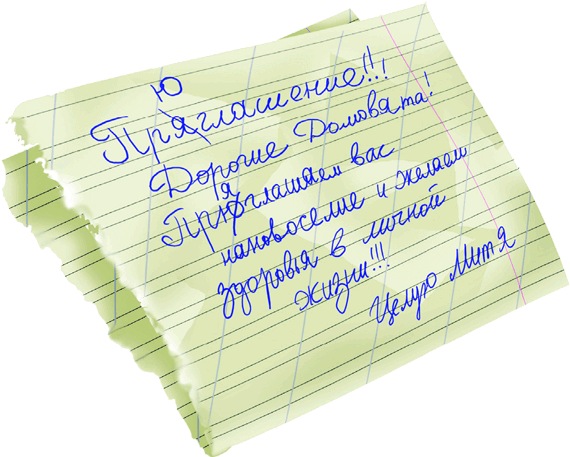 Ю
Пряглашение!!!
Дорогие Домовята!
я
Прюглашаем вас
нановоселие и желаем
здоровья в личной
жизни!!!
Целую Митя